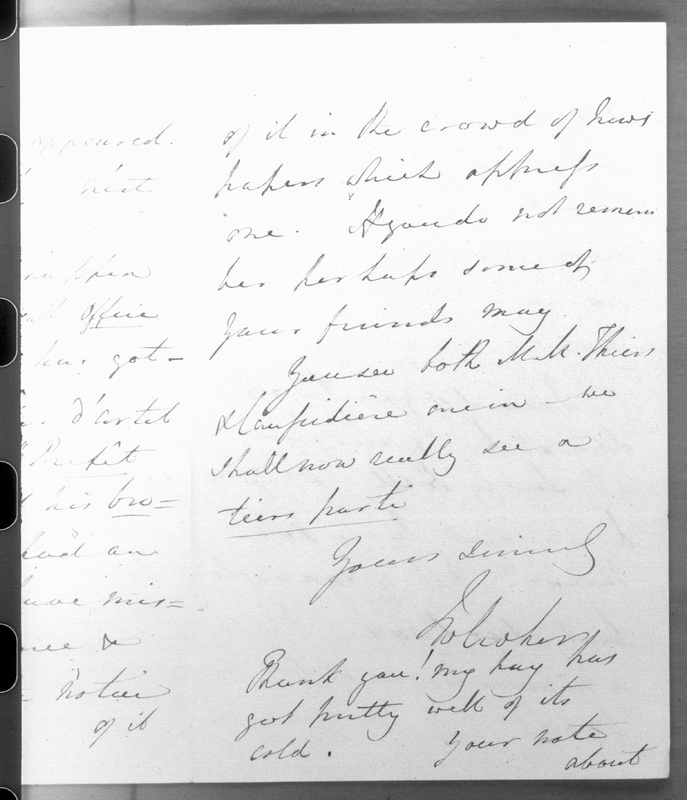 appeared.
n'est
office
has got-
d'artel
Préfêt
his bro=
had an
have mis=
&
notice
of it
of it in the crowd of News
papers which oppress
one. If you do not remem
ber perhaps some of
your friends may.
You see both M.M. Thiers
& are in - we
shall now really see a
tiers parti
Yours
Thank you! my hay has
got pretty well of its
cold. Your note
about